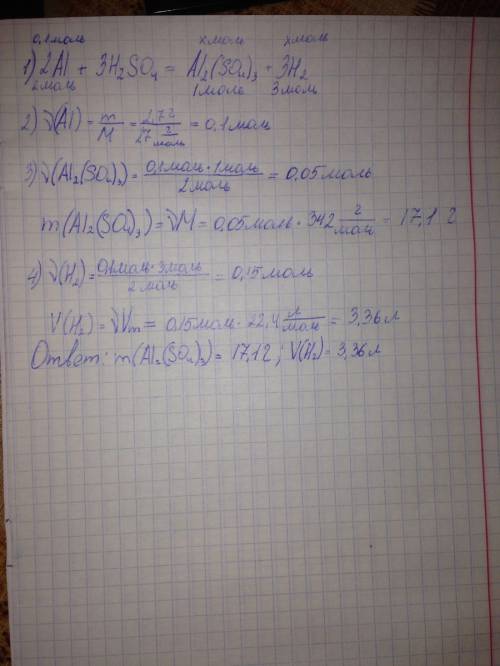 0,1моль xмоль xмоль
1) 2Al + 3H₂SO₄ = Al₂(SO₄)₃ + 3H₂
2моль 1моль 3моль
2) ν(Al) = m/M = 2,7г/27 г/моль = 0,1моль
3) ν(Al₂(SO₄)₃) = 0,1моль·1моль/2моль = 0,05моль
m(Al₂(SO₄)₃) = νM = 0,05моль · 342 г/моль = 17,1 г
4) ν(H₂) = 0,1моль·3моль/2моль = 0,15моль
V(H₂) = νVm = 0,15моль · 22,4 л/моль = 3,36л
Ответ: m(Al₂(SO₄)₃) = 17,1г ; V(H₂) = 3,36л